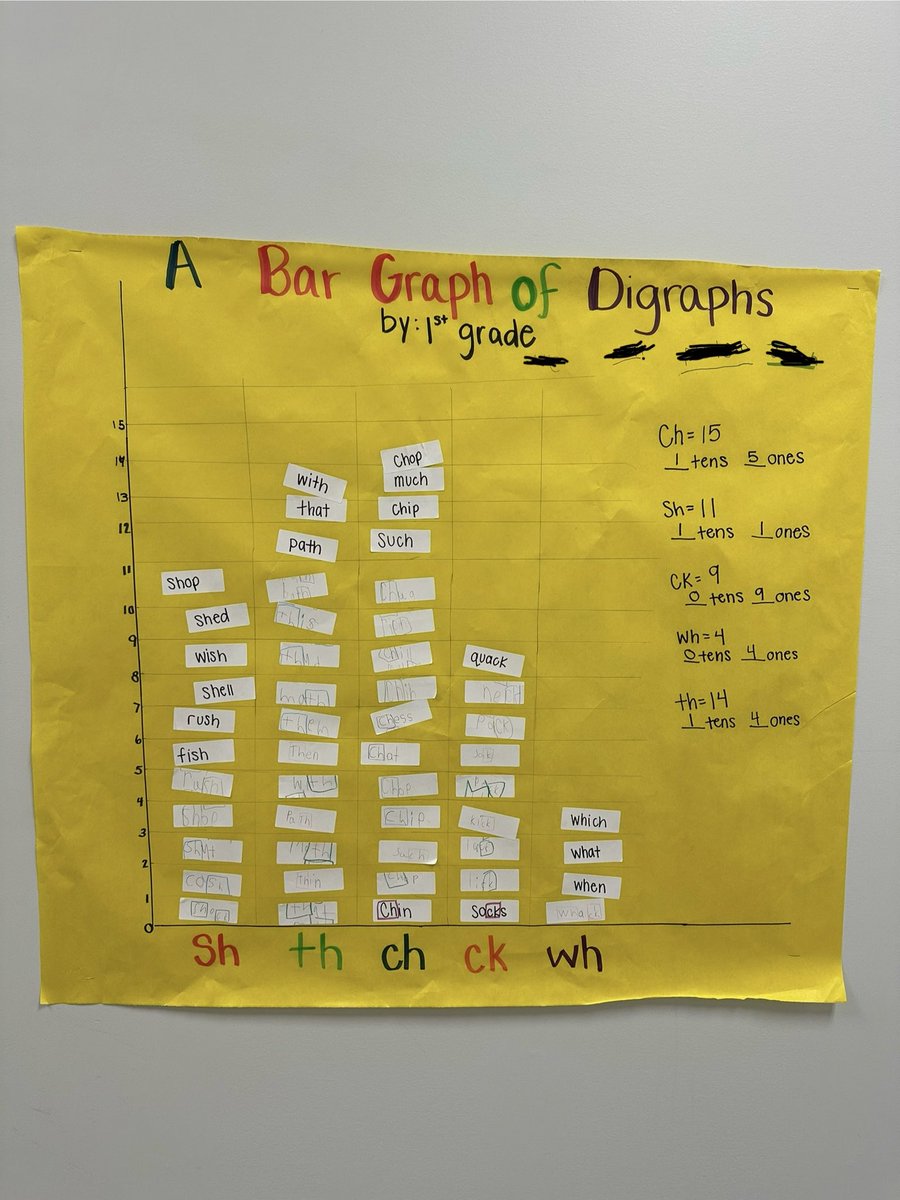 A Bar Graph of Digraphs
by: 1st grade
15
14
13
12
11
10
9
8
7
6
5
4
3
2
1
0
shop
shed
wish
shell
rush
fish
with
that
path
this
them
Then
with
Path
Math
Thin
Chop
much
chip
Such
Chess
Chat
Chop
Chip
Chin
quack
Pack
kick
Socks
which
what
when
Sh th ch ck wh
Ch=15
1 tens 5 ones
Sh=11
1 tens 1 ones
CK=9
0 tens 9 ones
Wh=4
0 tens 4 ones
th=14
1 tens 4 ones